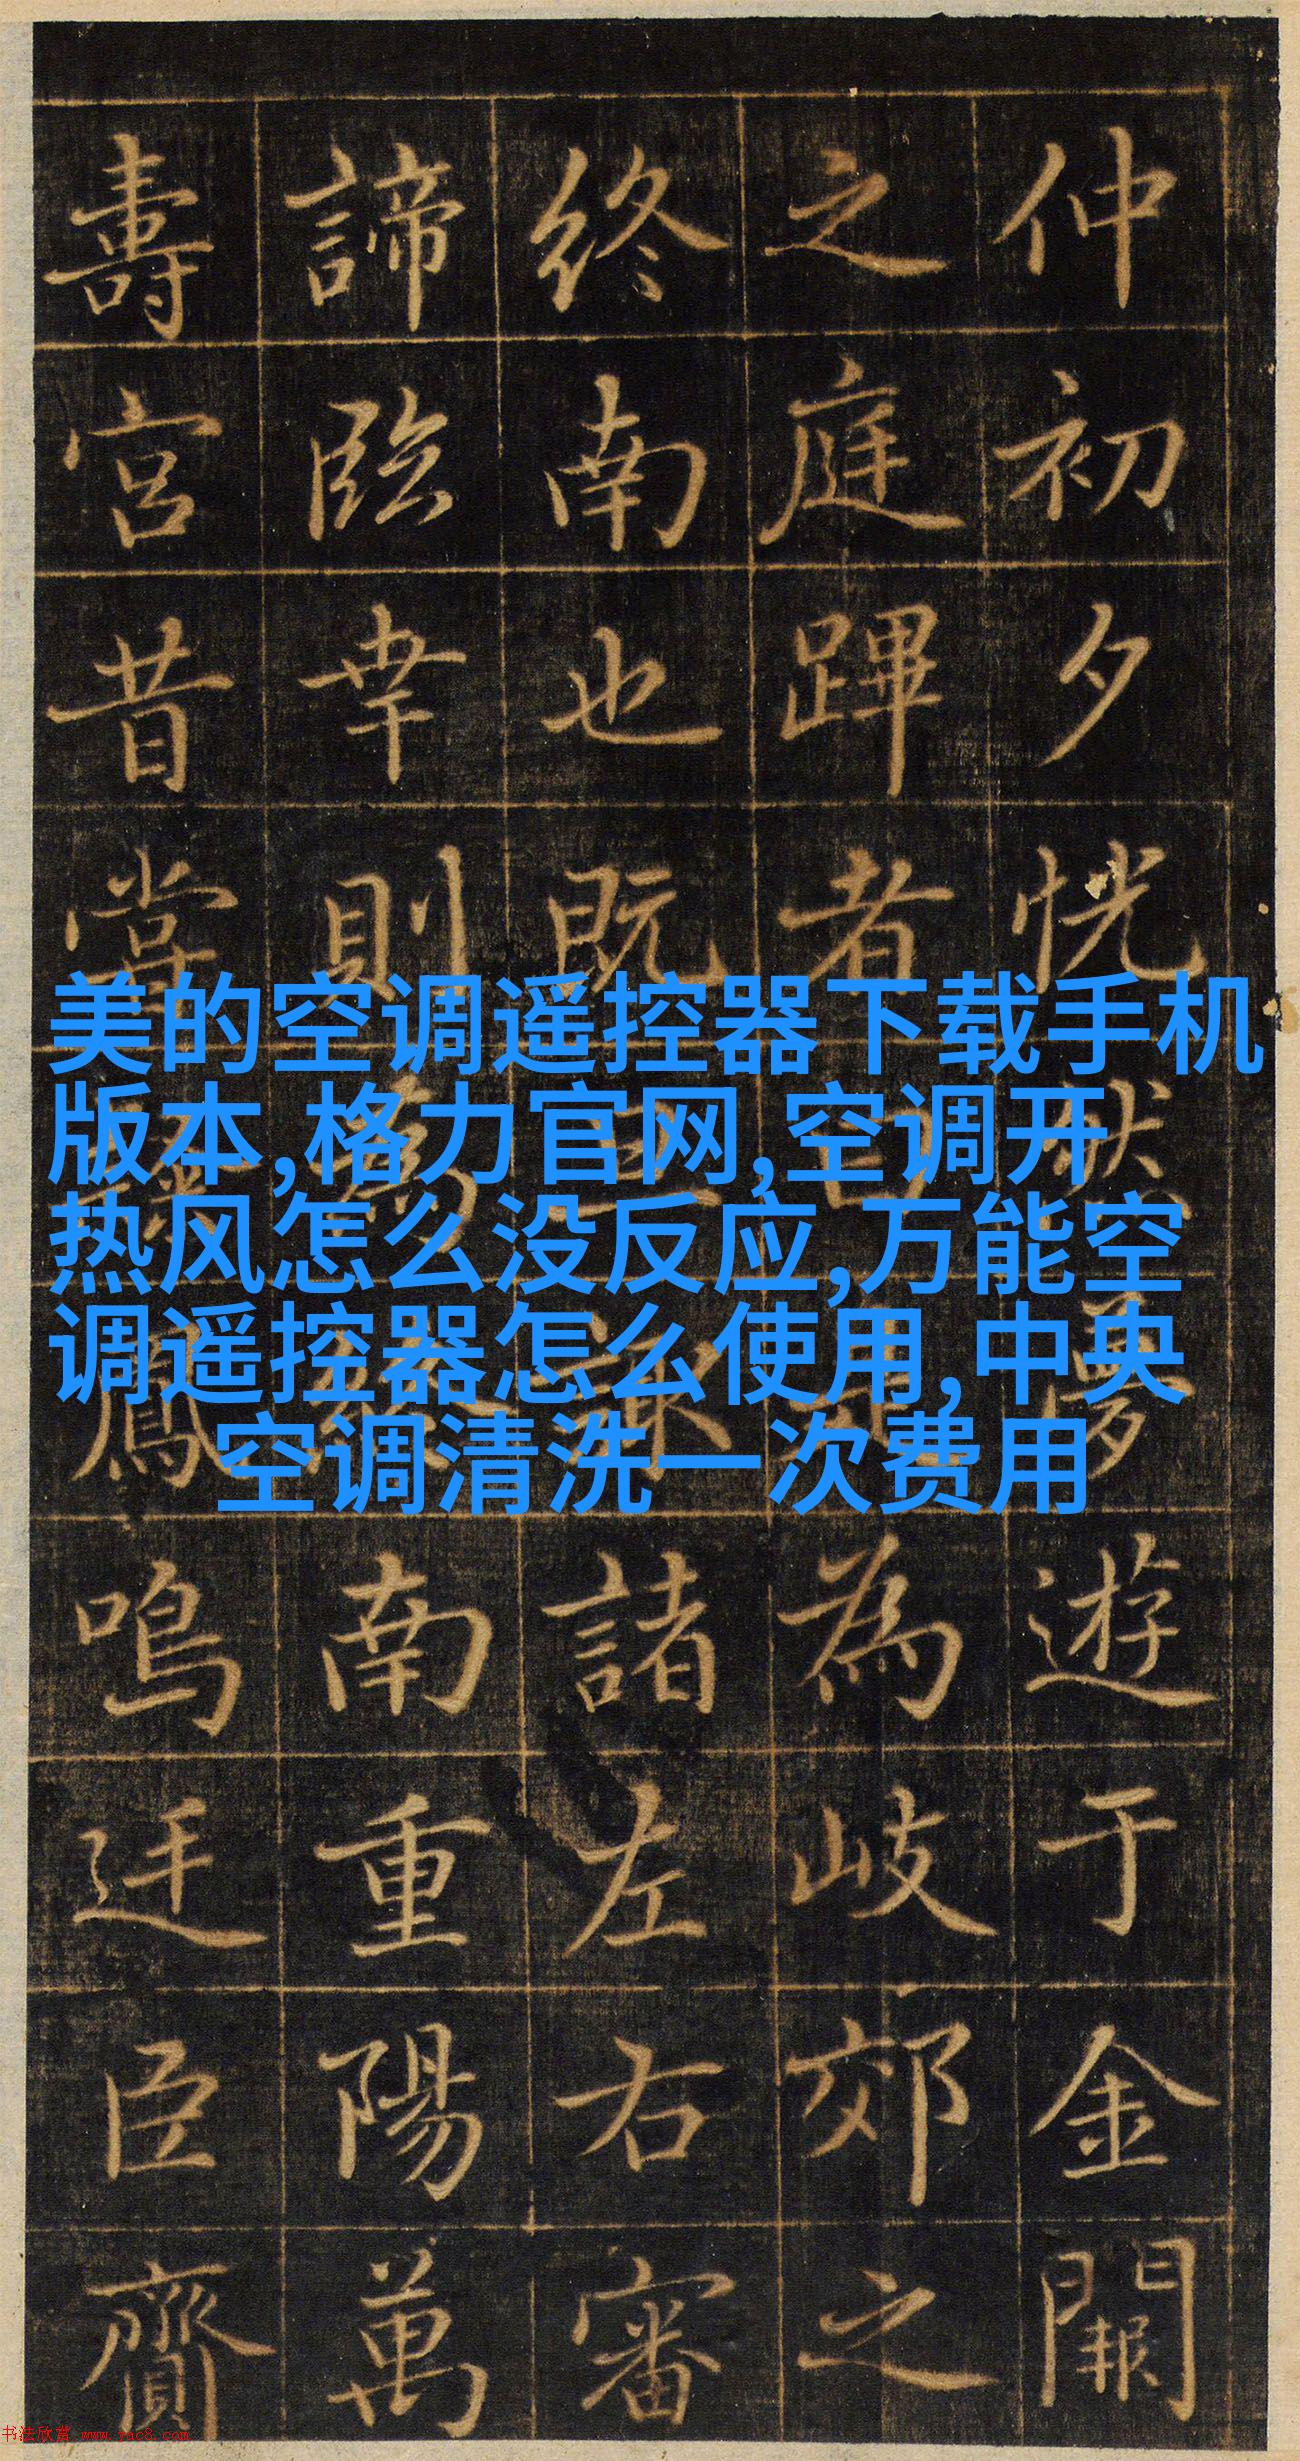 仲初夕恍然夢遊于金闕
之庭蹕者為岐郊之
終南也既諸左右審
諦臨幸則南重陽萬
壽宮昔嘗鳳鳴迋臣齎
美的空调遥控器下载手机
版本,格力官网,空调开
热风怎么没反应,万能空
调遥控器怎么使用,中央
空调清洗一次费用
书法欣赏 www.yac8.com